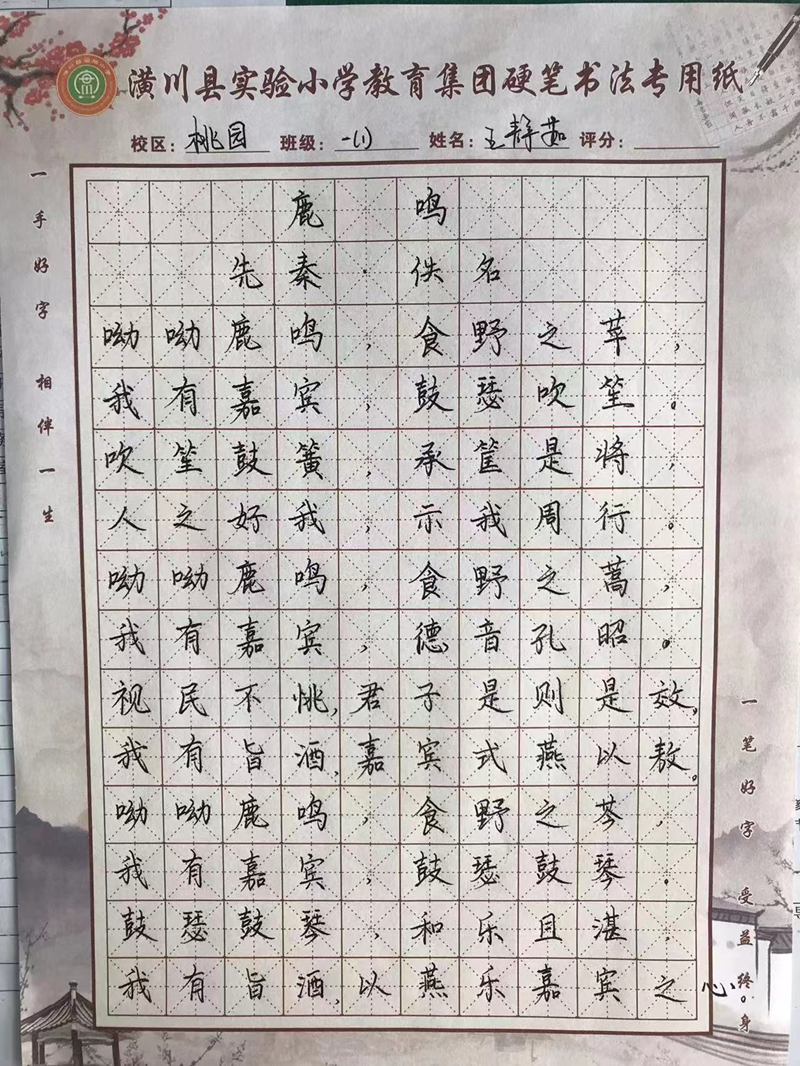 潢川县实验小学教育集团硬笔书法专用纸
校区：桃园 班级：一(1) 姓名：王静茹 评分：
一手好字 相伴一生
鹿 鸣
先秦·佚名
呦呦鹿鸣，食野之苹，
我有嘉宾，鼓瑟吹笙。
吹笙鼓簧，承筐是将，
人之好我，示我周行。
呦呦鹿鸣，食野之蒿，
我有嘉宾，德音孔昭。
视民不恌，君子是则是效。
我有旨酒，嘉宾式燕以敖。
呦呦鹿鸣，食野之芩，
我有嘉宾，鼓瑟鼓琴。
鼓瑟鼓琴，和乐且湛，
我有旨酒，以燕乐嘉宾之心。
一笔好字 受益终身